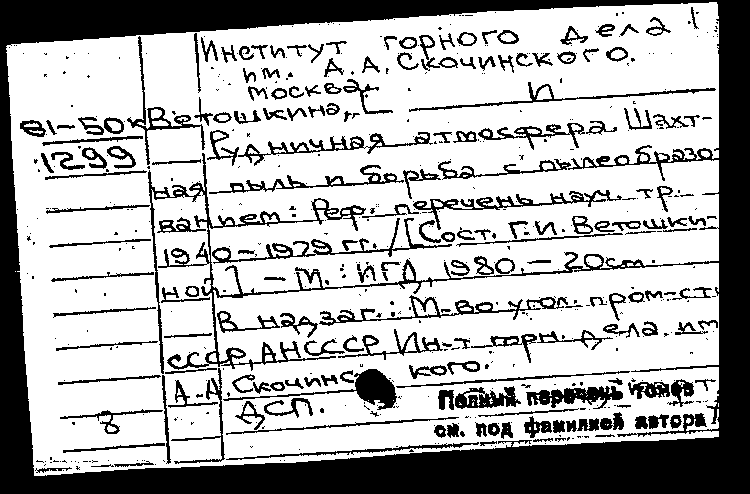 Институт горного дела
им. А. А. Скочинского.
Москва.
81-50к Ветошкина, [ И
1299 Рудничная атмосфера. Шахт-
ная пыль и борьба с пылеобразо
ванием: Реф. перечень науч. тр.
1940-1979 гг. / [Сост. Г. И. Ветошки-
ной]. - М.: ИГД, 1980. - 20см.
В надзаг.: М-во угол. пром-сти
СССР, АН СССР, Ин-т горн. дела им
А. А. Скочинского.
ДСП.
8
Полный перечень томов
см. под фамилией автора